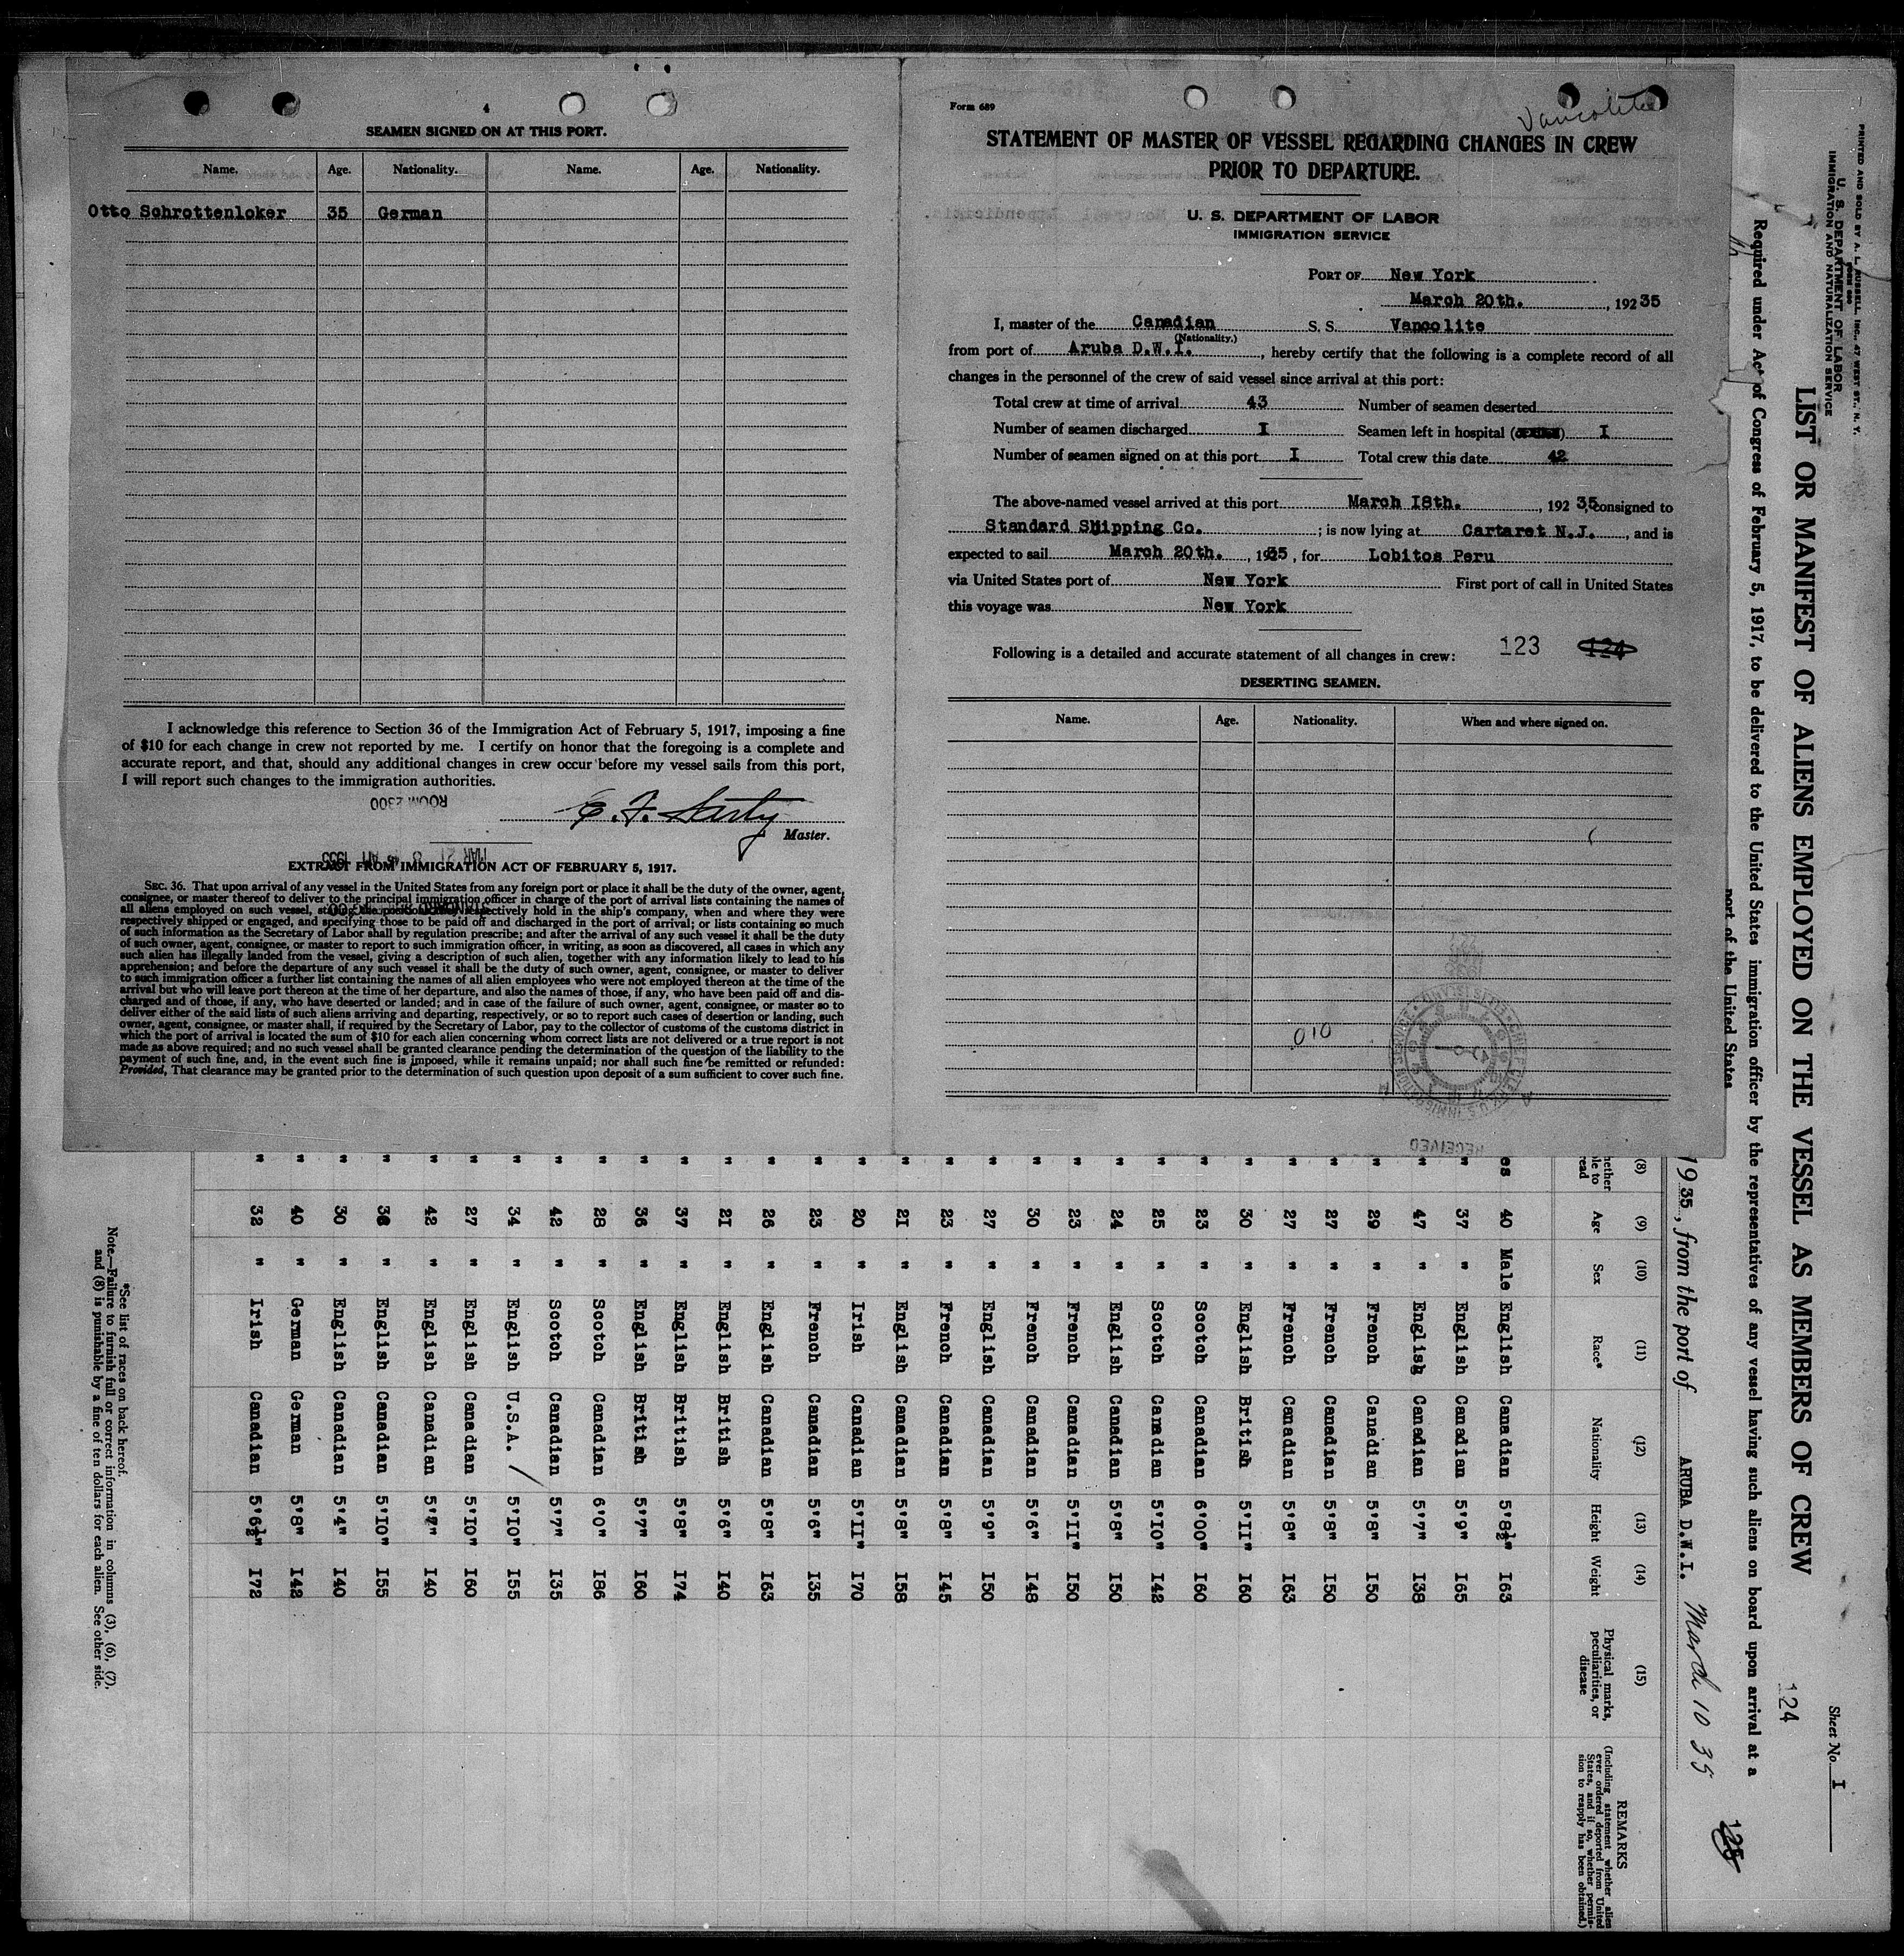 4
SEAMEN SIGNED ON AT THIS PORT.
Name. Age. Nationality. Name. Age. Nationality.
Otto Schrottenloker 35 German
I acknowledge this reference to Section 36 of the Immigration Act of February 5, 1917, imposing a fine
of $10 for each change in crew not reported by me. I certify on honor that the foregoing is a complete and
accurate report, and that, should any additional changes in crew occur before my vessel sails from this port,
I will report such changes to the immigration authorities.
ROOM 2300
Master.
EXTRACT FROM IMMIGRATION ACT OF FEBRUARY 5, 1917.
SEC. 36. That upon arrival of any vessel in the United States from any foreign port or place it shall be the duty of the owner, agent,
consignee, or master thereof to deliver to the principal immigration officer in charge of the port of arrival lists containing the names of
all aliens employed on such vessel, stating the positions they respectively hold in the ship's company, when and where they were
respectively shipped or engaged, and specifying those to be paid off and discharged in the port of arrival; or lists containing so much
of such information as the Secretary of Labor shall by regulation prescribe; and after the arrival of any such vessel it shall be the duty
of such owner, agent, consignee, or master to report to such immigration officer, in writing, as soon as discovered, all cases in which any
such alien has illegally landed from the vessel, giving a description of such alien, together with any information likely to lead to his
apprehension; and before the departure of any such vessel it shall be the duty of such owner, agent, consignee, or master to deliver
to such immigration officer a further list containing the names of all alien employees who were not employed thereon at the time of the
arrival but who will leave port thereon at the time of her departure, and also the names of those, if any, who have been paid off and dis-
charged and of those, if any, who have deserted or landed; and in case of the failure of such owner, agent, consignee, or master so to
deliver either of the said lists of such aliens arriving and departing, respectively, or so to report such cases of desertion or landing, such
owner, agent, consignee, or master shall, if required by the Secretary of Labor, pay to the collector of customs of the customs district in
which the port of arrival is located the sum of $10 for each alien concerning whom correct lists are not delivered or a true report is not
made as above required; and no such vessel shall be granted clearance pending the determination of the question of the liability to the
payment of such fine, and, in the event such fine is imposed, while it remains unpaid; nor shall such fine be remitted or refunded:
Provided, That clearance may be granted prior to the determination of such question upon deposit of a sum sufficient to cover such fine.
Form 689
Vancolite
STATEMENT OF MASTER OF VESSEL REGARDING CHANGES IN CREW
PRIOR TO DEPARTURE.
U. S. DEPARTMENT OF LABOR
IMMIGRATION SERVICE
PORT OF New York
March 20th. , 192 35
I, master of the Canadian S. S. Vancolite
(Nationality.)
from port of Aruba D.W.I. , hereby certify that the following is a complete record of all
changes in the personnel of the crew of said vessel since arrival at this port:
Total crew at time of arrival 43 Number of seamen deserted
Number of seamen discharged I Seamen left in hospital I
Number of seamen signed on at this port I Total crew this date 42
The above-named vessel arrived at this port March I8th. , 192 35, consigned to
Standard Shipping Co. ; is now lying at Cartaret N.J. , and is
expected to sail March 20th. , 1935, for Lobitos Peru
via United States port of New York First port of call in United States
this voyage was New York
Following is a detailed and accurate statement of all changes in crew: 123 124
DESERTING SEAMEN.
Name. Age. Nationality. When and where signed on.
010
RECEIVED
PRINTED AND SOLD BY A. L. RUSSELL, INC., 47 WEST ST., N. Y.
U. S. DEPARTMENT OF LABOR
IMMIGRATION AND NATURALIZATION SERVICE
Sheet No. I
LIST OR MANIFEST OF ALIENS EMPLOYED ON THE VESSEL AS MEMBERS OF CREW
124
Required under Act of Congress of February 5, 1917, to be delivered to the United States immigration officer by the representatives of any vessel having such aliens on board upon arrival at a
port of the United States
125
1935, from the port of ARUBA D.W.I. March 10 35
(8) (9) (10) (11) (12) (13) (14) (15)
Age Sex Race* Nationality Height Weight Physical marks, peculiarities, or disease
REMARKS
(Including statement whether alien
ever ordered deported from United
States, and if so, whether permis-
sion to reapply has been obtained.)
es 40 Male English Canadian 5'8½" I63
" 37 " English Canadian 5'9" I65
" 47 " English Canadian 5'7" I38
" 29 " French Canadian 5'8" I50
" 27 " French Canadian 5'8" I50
" 27 " French Canadian 5'8" I63
" 30 " English British 5'II" I60
" 23 " Scotch Canadian 6'00" I60
" 25 " Scotch Canadian 5'I0" I42
" 24 " English Canadian 5'8" I50
" 23 " French Canadian 5'II" I50
" 30 " French Canadian 5'6" I48
" 27 " English Canadian 5'9" I50
" 23 " French Canadian 5'8" I45
" 21 " English Canadian 5'8" I58
" 20 " Irish Canadian 5'II" I70
" 23 " French Canadian 5'6" I35
" 26 " English Canadian 5'8" I63
" 2I " English British 5'6" I40
" 37 " English British 5'8" I74
" 36 " English British 5'7" I60
" 28 " Scotch Canadian 6'0" I86
" 42 " Scotch Canadian 5'7" I35
" 34 " English U.S.A. / 5'I0" I55
" 27 " English Canadian 5'I0" I60
" 42 " English Canadian 5'7" I40
" 36 " English Canadian 5'I0" I55
" 30 " English Canadian 5'4" I40
" 40 " German German 5'8" I42
" 32 " Irish Canadian 5'6½" I72
*See list of races on back hereof.
Note.—Failure to furnish full or correct information in columns (3), (6), (7),
and (8) is punishable by a fine of ten dollars for each alien. See other side.